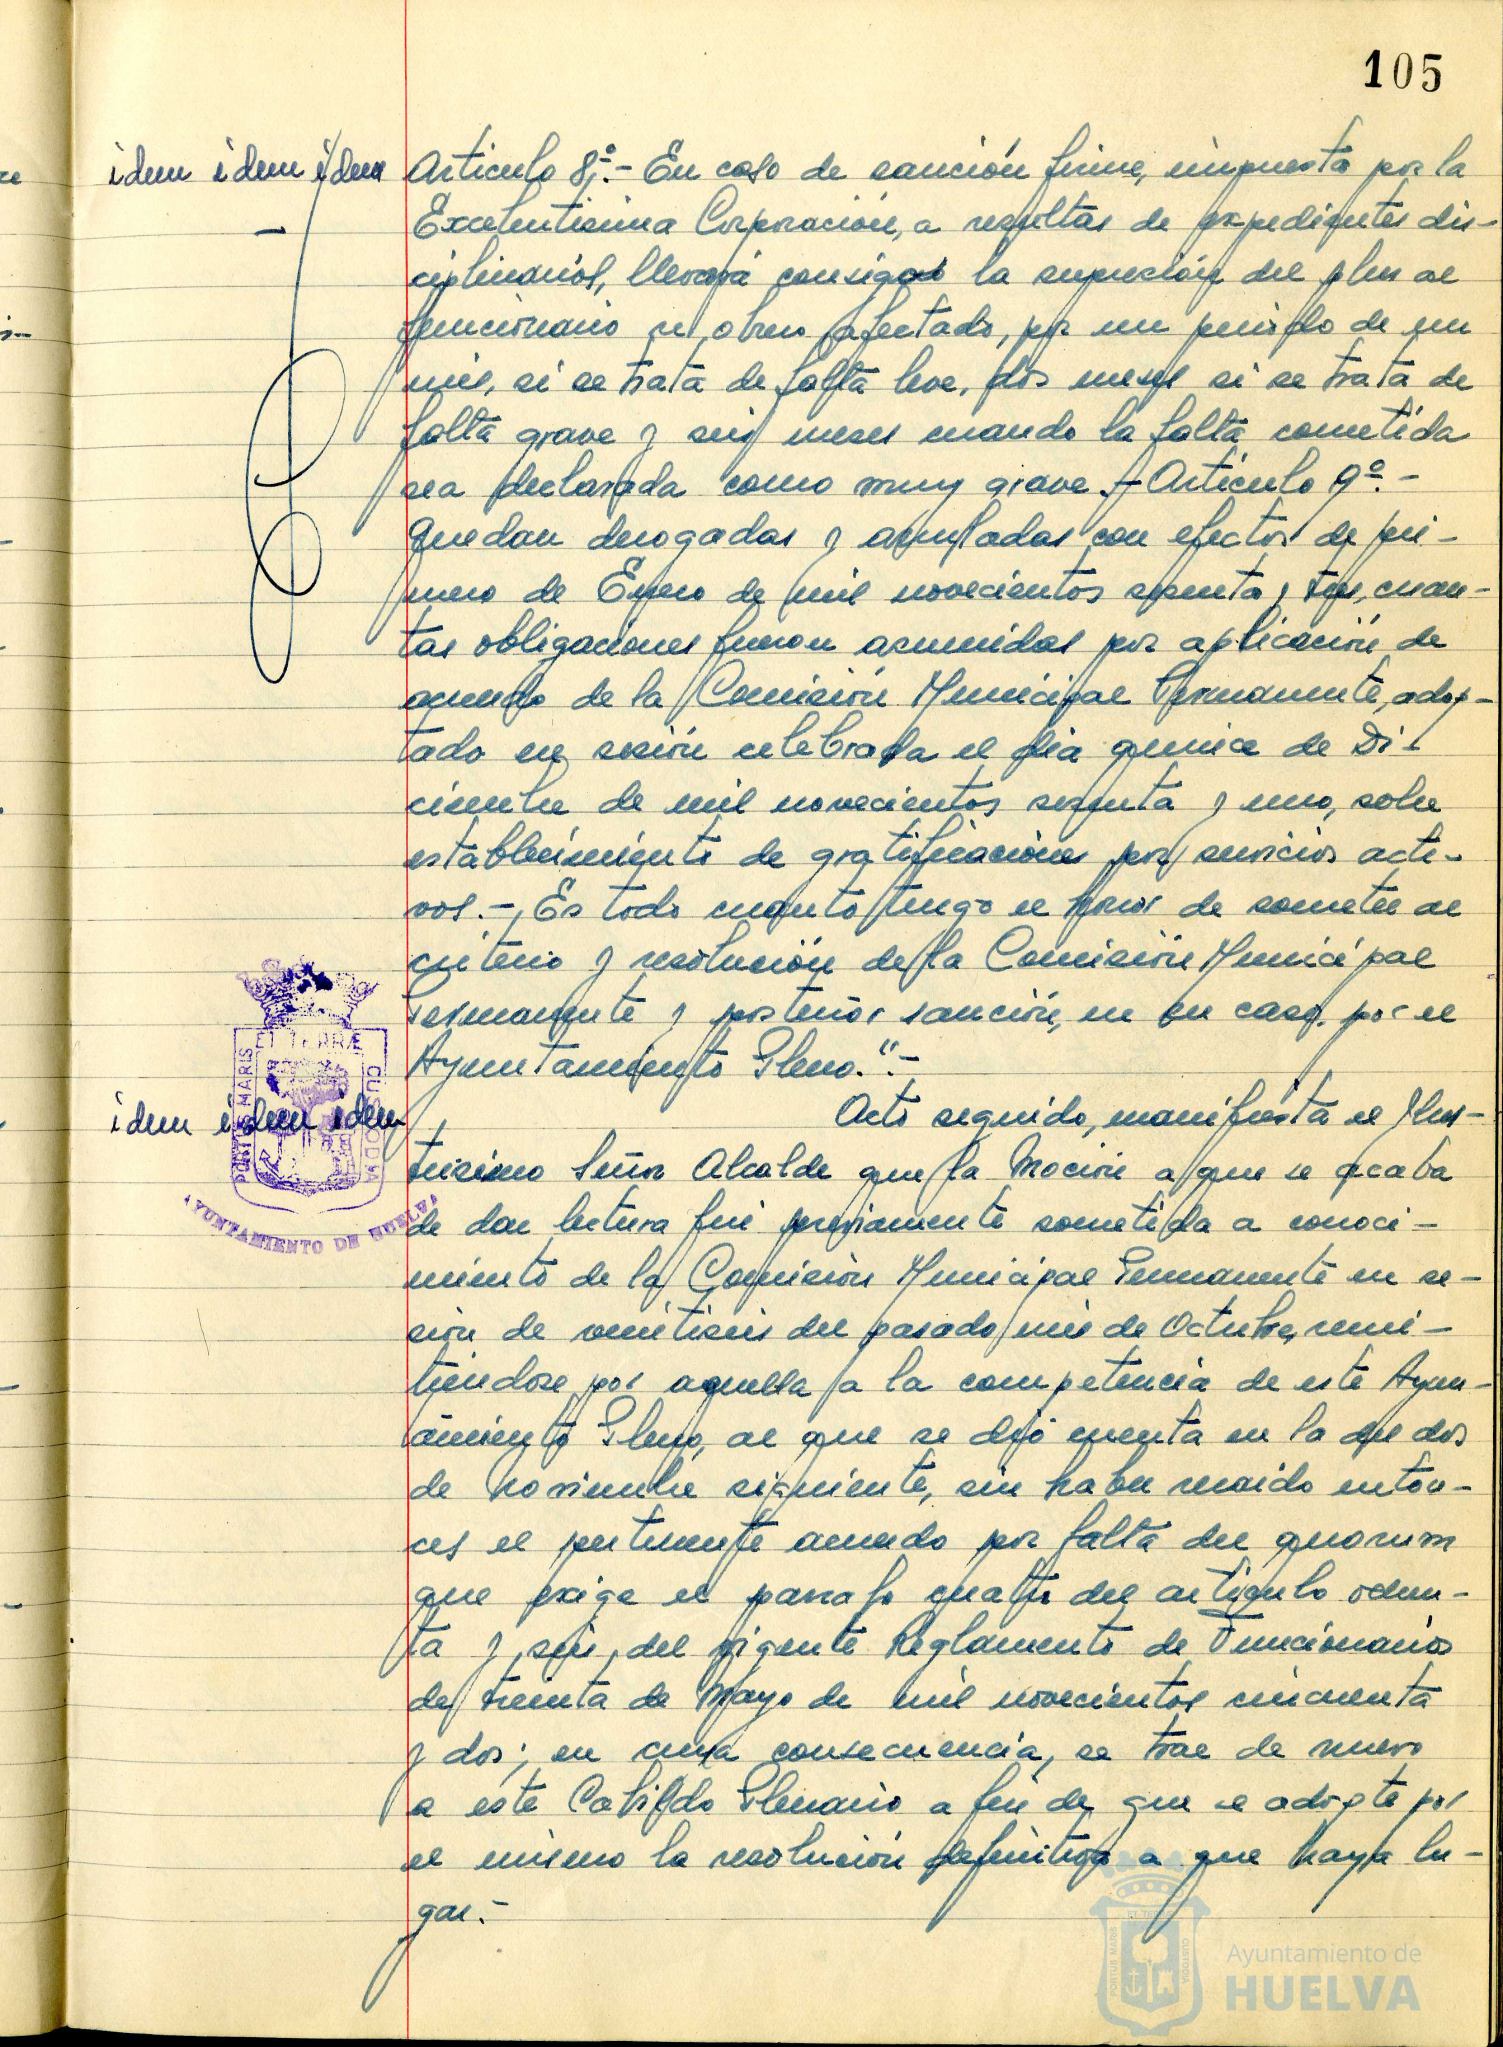 105
idem idem idem
Artículo 8º.- En caso de sanción firme, impuesta por la
Excelentisima Corporación, a resultas de expedientes dis-
ciplinarios, llevará consigo la supresión del plus al
funcionario u obrero afectado, por un periodo de un
mes, si se trata de falta leve, dos meses si se trata de
falta grave y seis meses cuando la falta cometida
sea declarada como muy grave.- Artículo 9º.-
Quedan derogadas y anuladas con efectos de pri-
mero de Enero de mil novecientos sesenta y tres, cuan-
tas obligaciones fueron asumidas por aplicación de
acuerdo de la Comisión Municipal Permanente, adop-
tado en sesión celebrada el dia quince de Di-
ciembre de mil novecientos sesenta y uno, sobre
establecimiento de gratificaciones por servicios acti-
vos.- Es todo cuanto tengo el honor de someter al
criterio y resolución de la Comisión Municipal
Permanente y posterior sanción, en su caso, por el
Ayuntamiento Pleno.".-
idem idem idem
Acto seguido, manifiesta el Ilus-
trisimo Señor Alcalde que la Moción a que se acaba
de dar lectura fué previamente sometida a conoci-
miento de la Comisión Municipal Permanente en se-
sión de veintiseis del pasado mes de Octubre, remi-
tiendose por aquella a la competencia de este Ayun-
tamiento Pleno, al que se dió cuenta en la del dos
de Noviembre siguiente, sin haber recaido enton-
ces el pertinente acuerdo por falta del quorum
que exige el parrafo cuarto del artículo ochen-
ta y seis del vigente Reglamento de Funcionarios
de treinta de Mayo de mil novecientos cincuenta
y dos; en cuya consecuencia, se trae de nuevo
a este Cabildo Plenario a fin de que se adopte por
el mismo la resolución definitiva a que haya lu-
gar.-
PORTUS MARIS
ET TERRÆ
CUSTODIA
AYUNTAMIENTO DE HUELVA
Ayuntamiento de
HUELVA